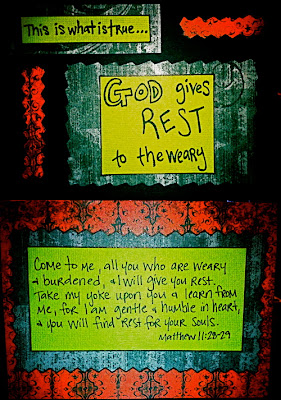 This is what is true...
GOD gives
REST
to the weary
Come to me, all you who are weary
& burdened, & I will give you rest.
Take my yoke upon you & learn from
me, for I am gentle & humble in heart,
& you will find rest for your souls.
Matthew 11:28-29